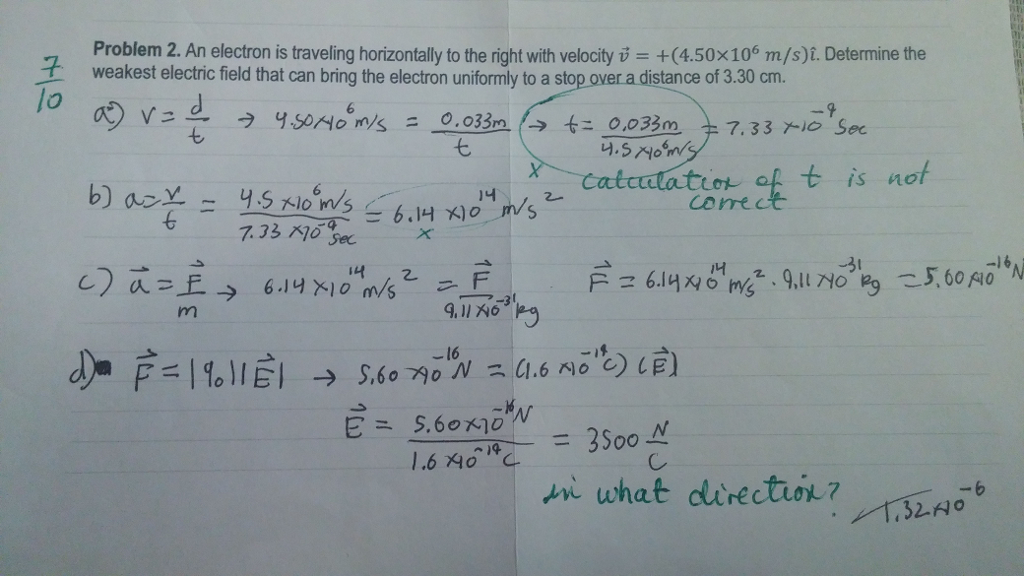 7/10
Problem 2. An electron is traveling horizontally to the right with velocity v⃗ = +(4.50×10⁶ m/s)î. Determine the
weakest electric field that can bring the electron uniformly to a stop over a distance of 3.30 cm.
a) v = d/t → 4.50×10⁶ m/s = 0.033m/t → t = 0.033m/4.5×10⁶m/s = 7.33 ×10⁻⁹ Sec
x calculation of t is not
correct
b) a = v/t = 4.5 ×10⁶ m/s / 7.33 ×10⁻⁹ sec = 6.14 ×10¹⁴ m/s²
x
c) a⃗ = F⃗/m → 6.14 ×10¹⁴ m/s² = F⃗/9.11×10⁻³¹kg F⃗ = 6.14×10¹⁴ m/s² · 9.11×10⁻³¹ kg = 5.60×10⁻¹⁶ N
d) F⃗ = |q₀||E⃗| → 5.60 ×10⁻¹⁶ N = (1.6 ×10⁻¹⁹ C) (E⃗)
E⃗ = 5.60×10⁻¹⁶ N / 1.6 ×10⁻¹⁹ C = 3500 N/C
in what direction?
1.32×10⁻⁶